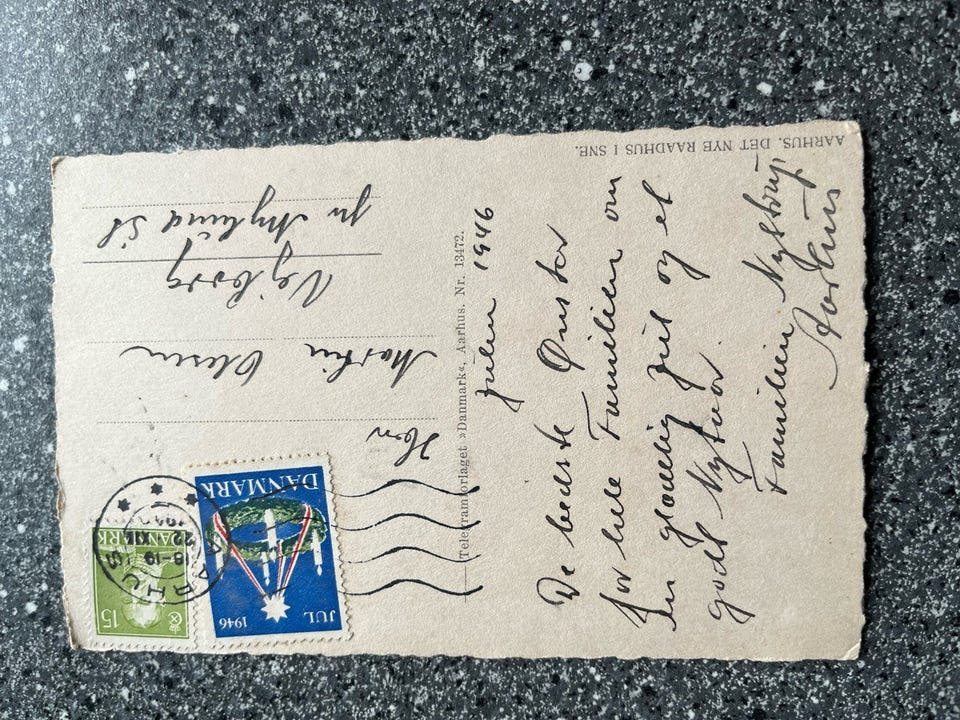 Julen 1946
De bedste Ønsker
for hele Familien om
en glædelig Jul og et
godt Nytaar.
Familien Nystrup
Aarhus
Telegramforlaget »Danmark«, Aarhus. Nr. 13472.
AARHUS. DET NYE RAADHUS I SNE.
DANMARK
JUL 1946
DANMARK
15
AARHUS
22.XII.
18-19
Hrr
Martin Olesen
Vejborg
pr Nylund St